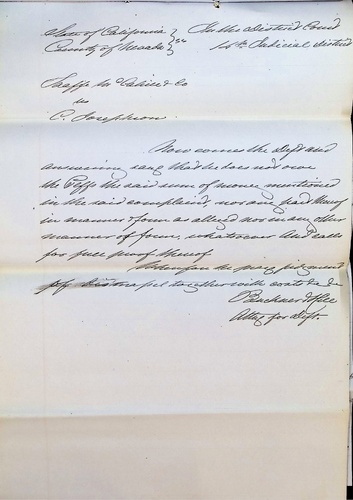 State of California } In the District Court
County of Nevada } ss 14th Judicial District
McCabe & Co
vs
C. Josephson
Now comes the Deft and
answering says that he does not owe
the Plff the said sum of money mentioned
in the said complaint, nor any part thereof
in manner & form as alleged nor in any other
manner or form, whatsoever And calls
for full proof thereof
Wherefore he prays judgment
of together with costs &c &c
Buckner & Hill
Atty for Deft.